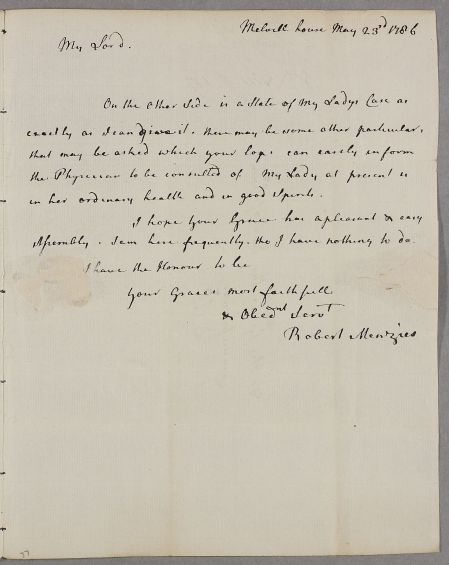 Melvill house May 23d 1786
My Lord.
On the other Side is a State of My Ladys Case as
exactly as I can give it. there may be some other particulars
that may be asked which your Lops can easily inform
the Physician to be consulted of My Lady at present is
in her ordinary health and in good Spirits.
I hope your Grace has a pleasant & easy
Assembly. I am here frequently. tho I have nothing to do
I have the Honour to be
your Graces most faithfull
& Obedient Servt
Robert Menzies